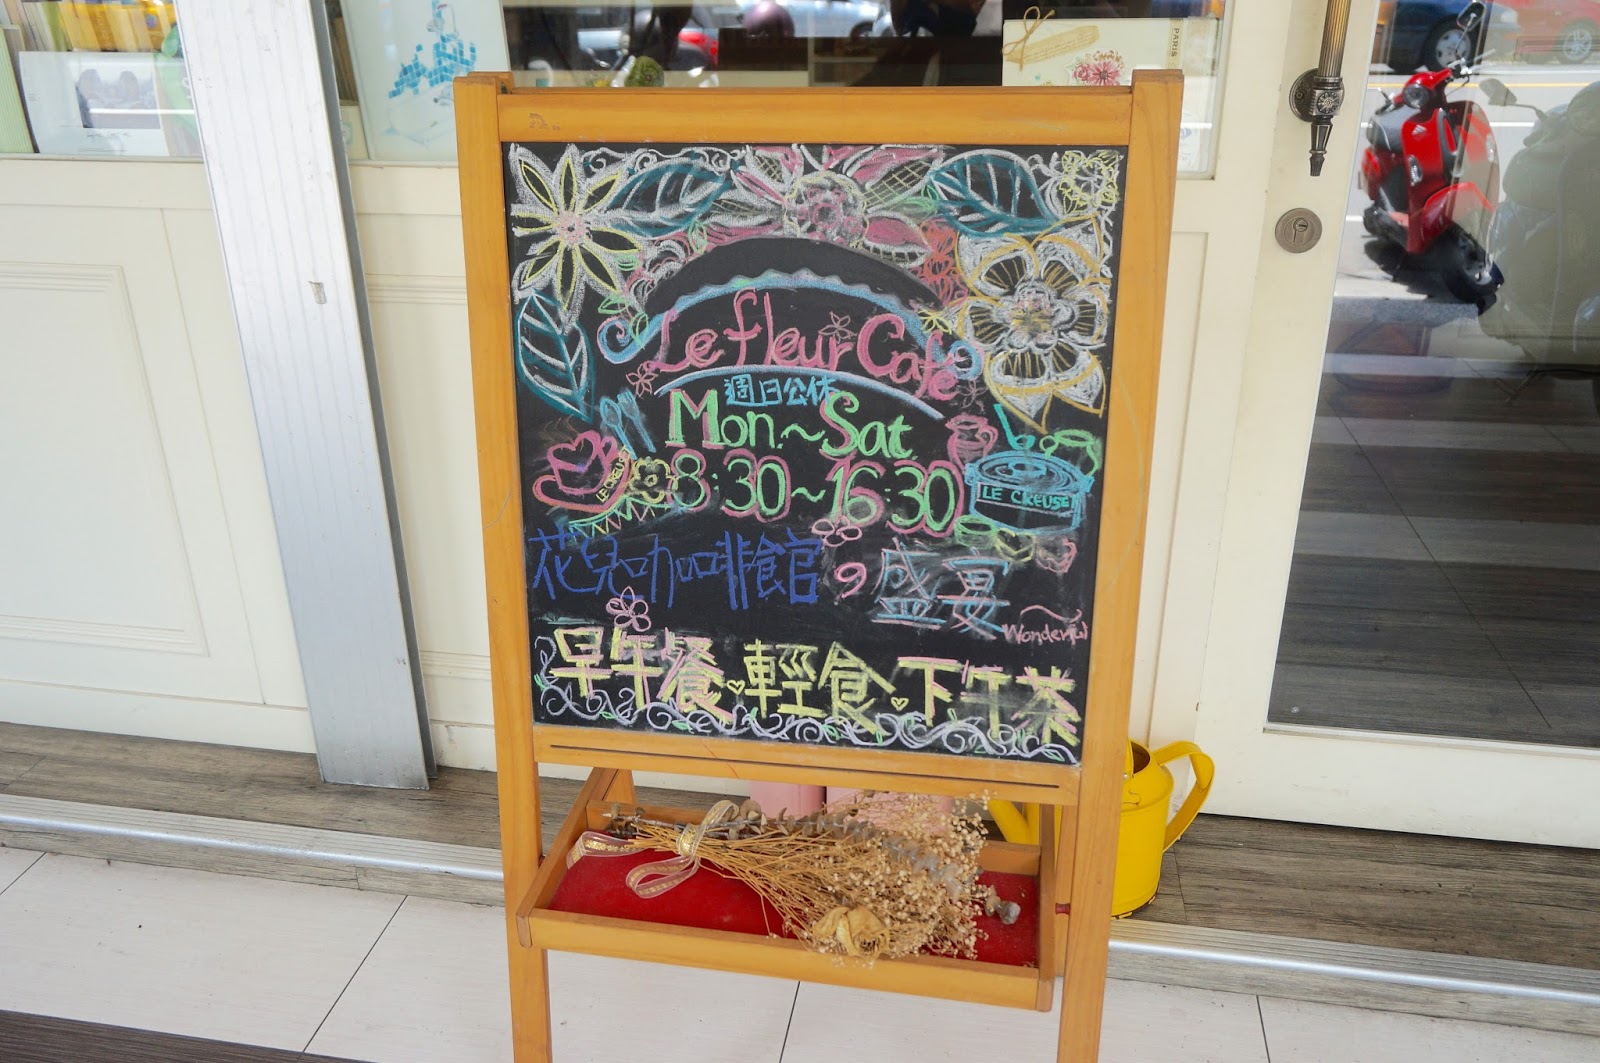 PARIS
Le fleur Café
週日公休
Mon.~Sat.
8:30~16:30
LE CREUSET
LE CREUSET
花兒咖啡館 の 盛宴
Wonderful
早午餐♡輕食♡下午茶